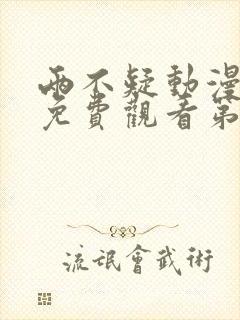 兩不疑動漫
免費觀看第
流氓會武術